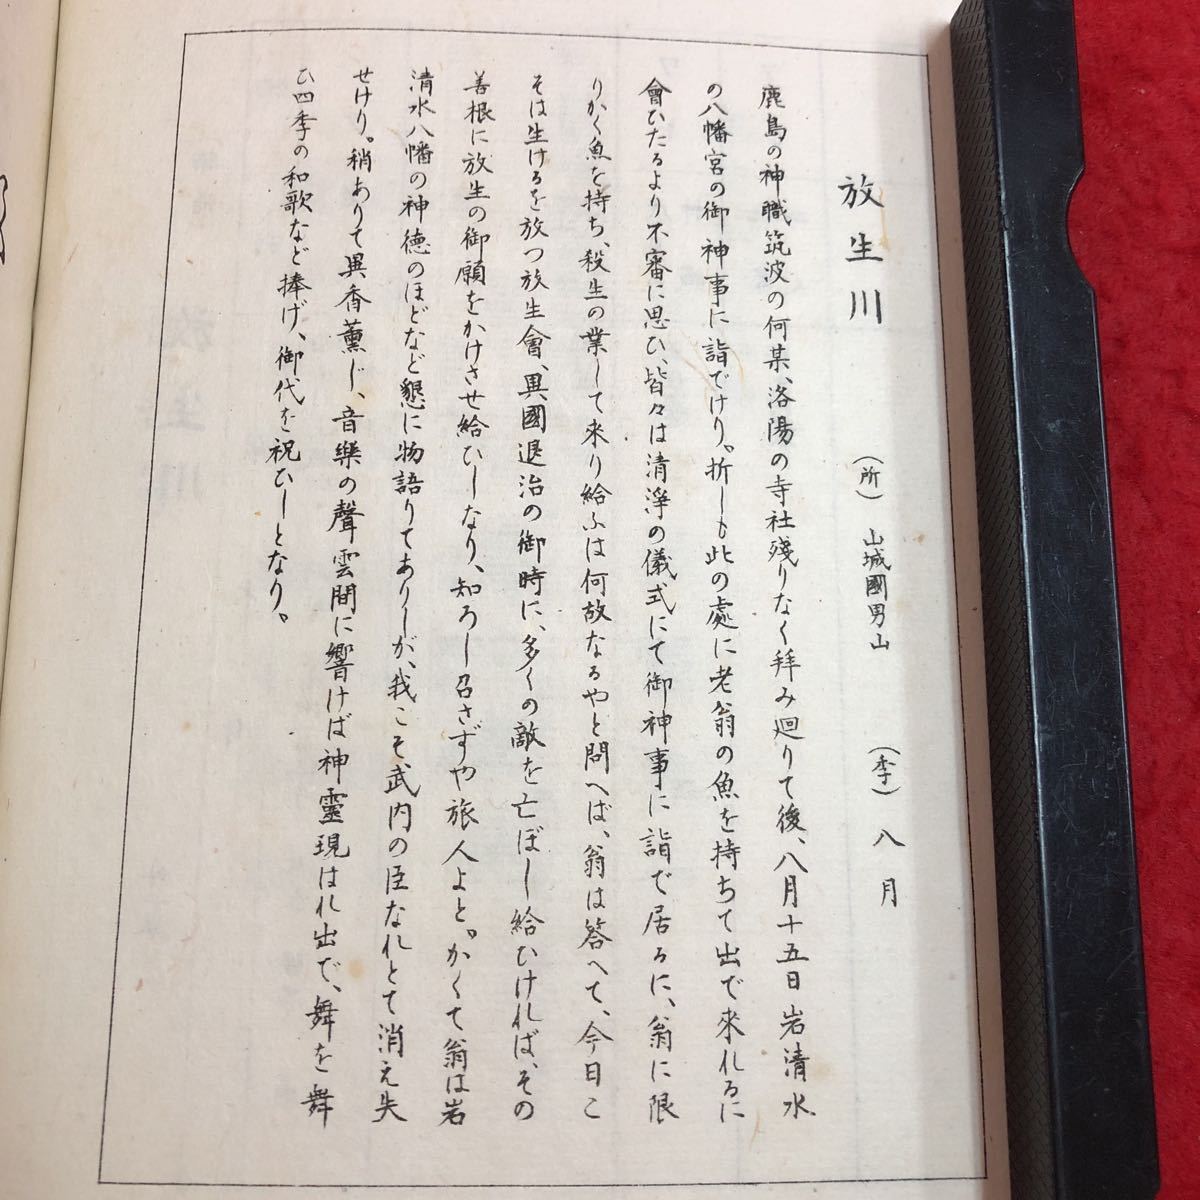 放生川
(所) 山城國男山 (季) 八月
鹿島の神職筑波の何某、洛陽の寺社殘りなく拜み廻りて後、八月十五日岩清水
の八幡宮の御神事に詣でけり。折しも此の處に老翁の魚を持ちて出で來れるに
會ひたるより不審に思ひ、皆々は清淨の儀式にて御神事に詣で居るに、翁に限
りかく魚を持ち、殺生の業して來り給ふは何故なるやと問へば、翁は答へて、今日こ
そは生けるを放つ放生會、異國退治の御時に、多くの敵を亡ぼし給ひければ、その
善根に放生の御願をかけさせ給ひしなり、知ろし召さずや旅人よと。かくて翁は岩
清水八幡の神德のほどなど懇に物語りてありしが、我こそ武内の臣なれとて消え失
せけり。稍ありて異香薰じ、音樂の聲雲間に響けば神靈現はれ出で、舞を舞
ひ四季の和歌など捧げ、御代を祝ひしとなり。